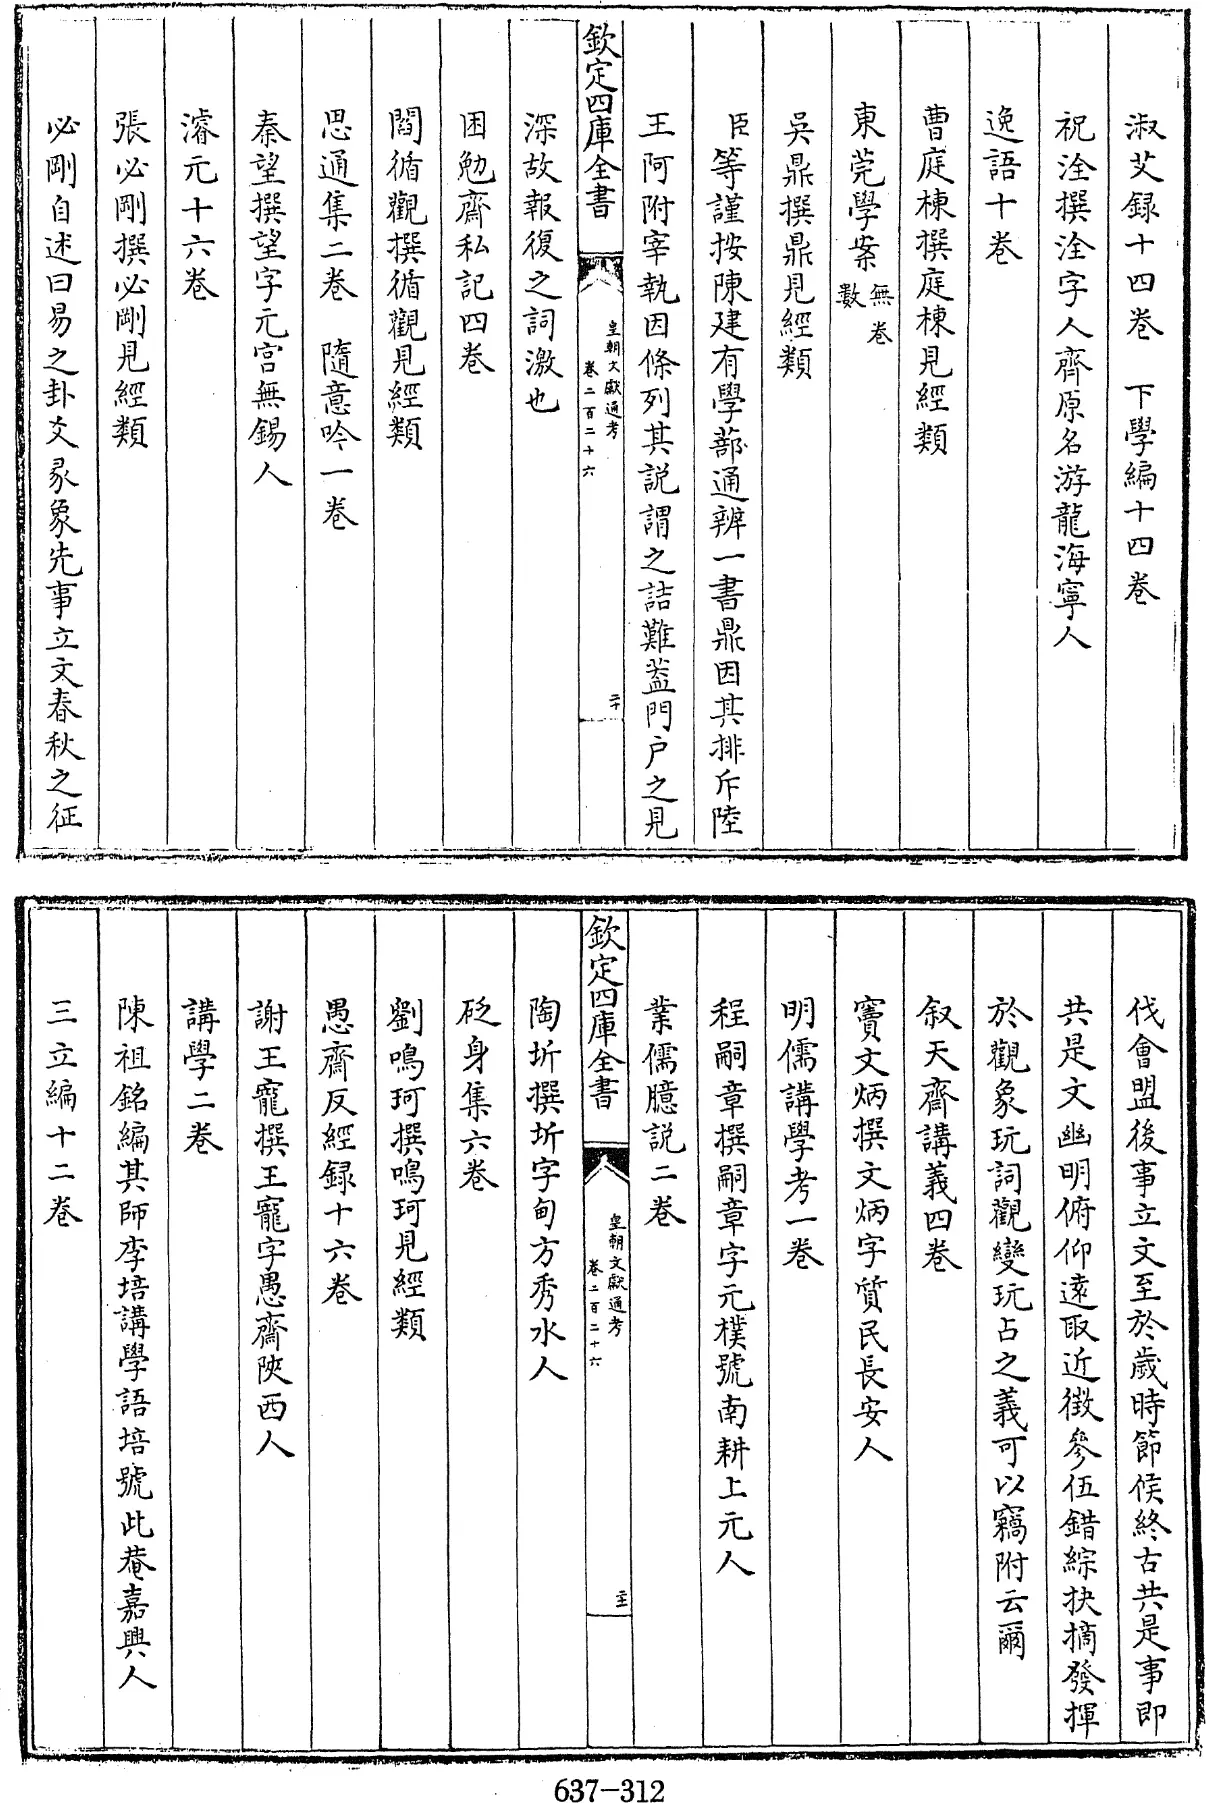 淑艾録十四卷　下學編十四卷
祝洤撰洤字人齋原名游龍海寧人
逸語十卷
曹庭棟撰庭棟見經類
東莞學案無卷數
吳鼎撰鼎見經類
臣等謹按陳建有學蔀通辨一書鼎因其排斥陸
王阿附宰執因條列其説謂之詰難葢門户之見
欽定四庫全書
皇朝文獻通考
卷二百二十六
二十
深故報復之詞激也
困勉齋私記四卷
閻循觀撰循觀見經類
思通集二卷　隨意吟一卷
秦望撰望字元宫無錫人
濬元十六卷
張必剛撰必剛見經類
必剛自述曰易之卦爻彖象先事立文春秋之征
伐會盟後事立文至於歲時節候終古共是事即
共是文幽明俯仰遠取近徴參伍錯綜抉摘發揮
於觀象玩詞觀變玩占之義可以竊附云爾
叙天齋講義四卷
竇文炳撰文炳字質民長安人
明儒講學考一卷
程嗣章撰嗣章字元樸號南耕上元人
業儒臆説二卷
欽定四庫全書
皇朝文獻通考
卷二百二十六
主
陶圻撰圻字甸方秀水人
砭身集六卷
劉鳴珂撰鳴珂見經類
愚齋反經録十六卷
謝王寵撰王寵字愚齋陜西人
講學二卷
陳祖銘編其師李培講學語培號此菴嘉興人
三立編十二卷
637-312